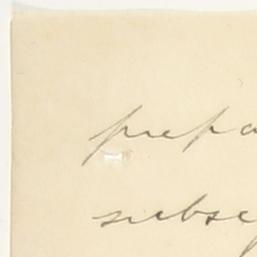 prepa
subse